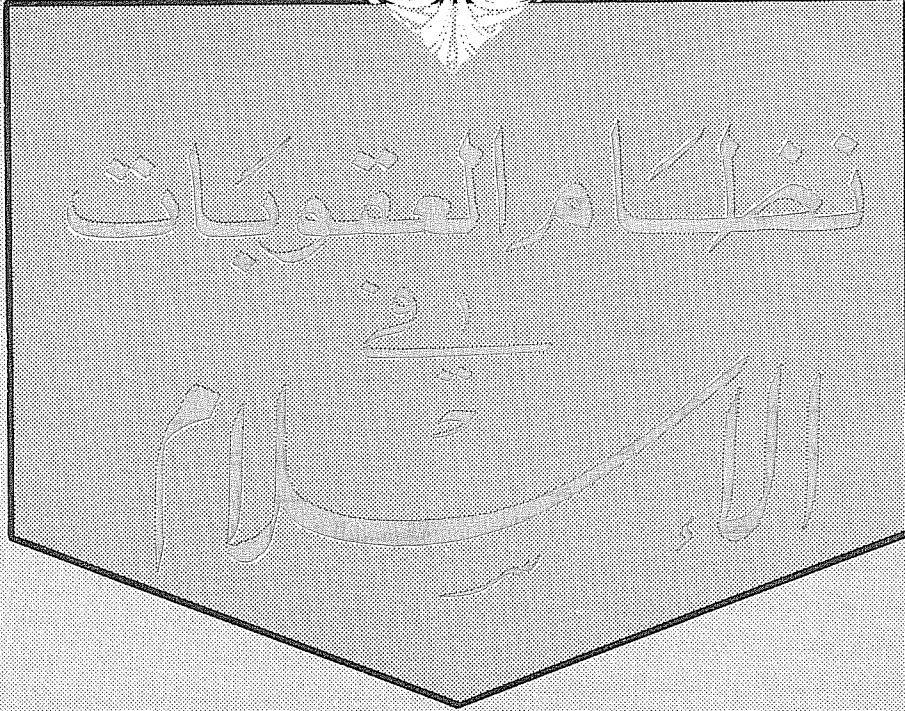 نظام العقوبات
في
الإسلام